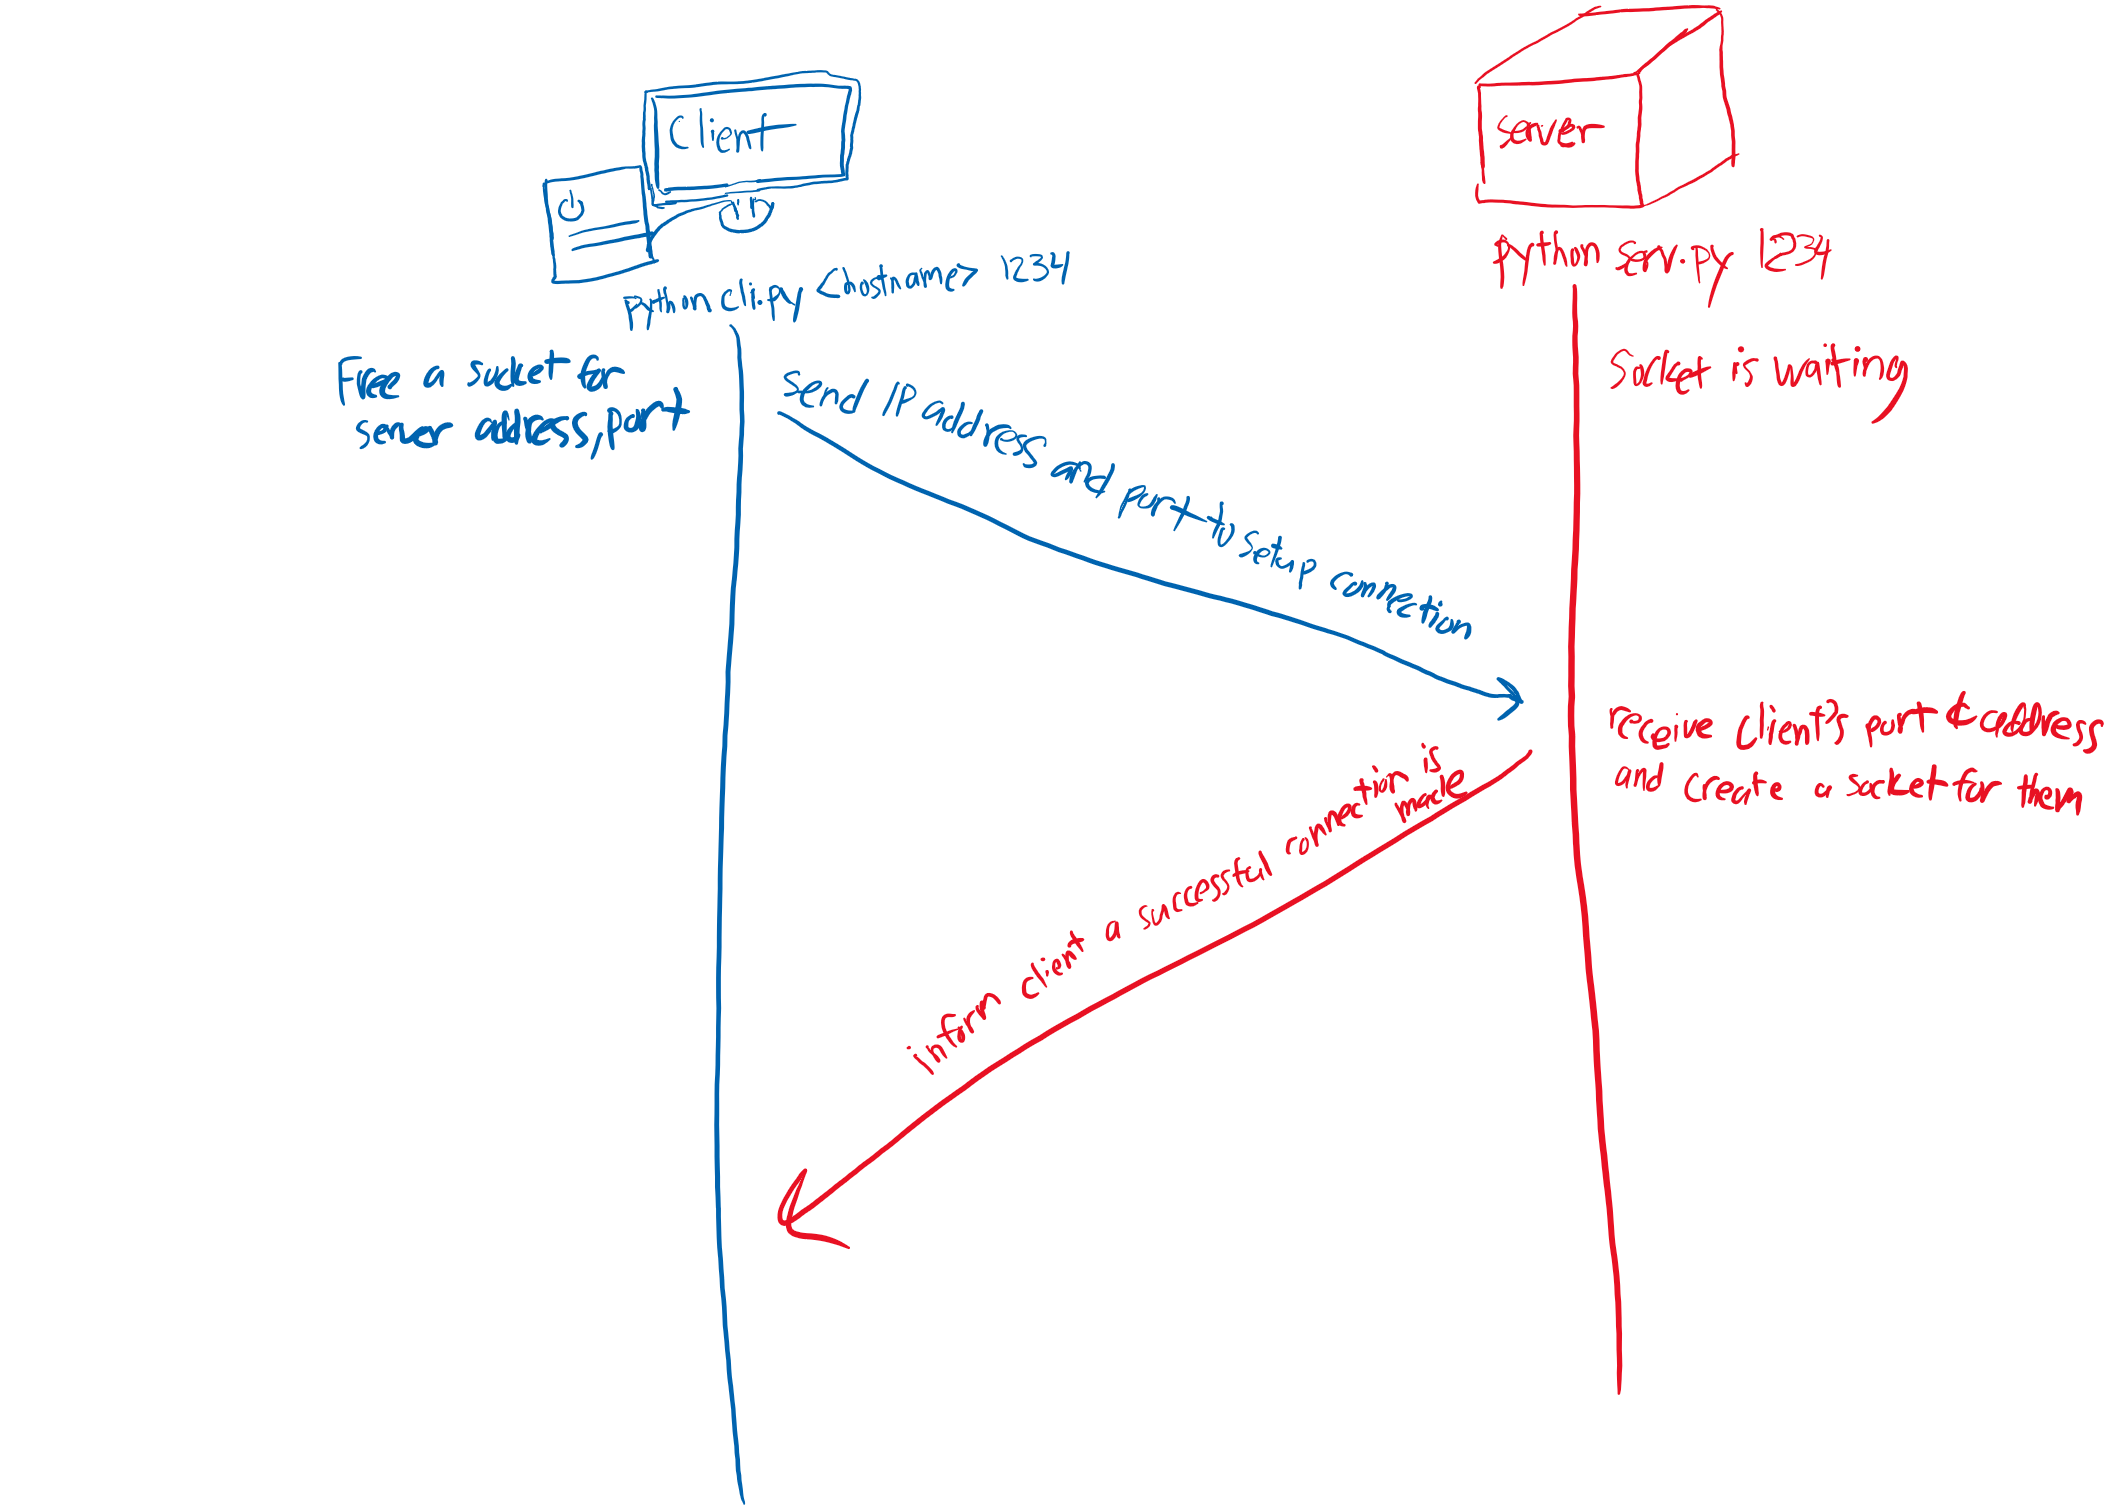 Client
server
python cli.py <hostname> 1234
python serv.py 1234
Free a socket for
server address, port
Socket is waiting
Send IP address and port to setup connection
receive client's port & address
and create a socket for them
inform client a successful connection is
made